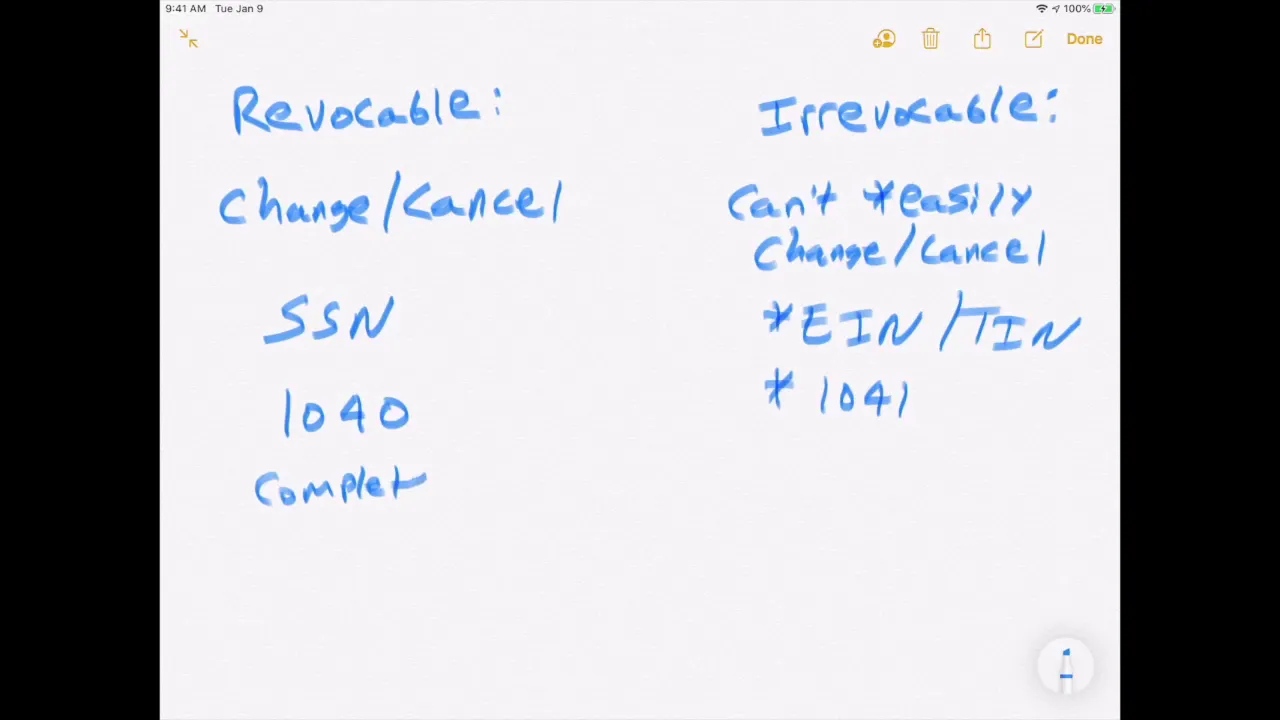 9:41 AM Tue Jan 9 100%
Done
Revocable: Irrevocable:
Change/Cancel Can't *easily
Change/Cancel
SSN *EIN/TIN
1040 * 1041
Complet